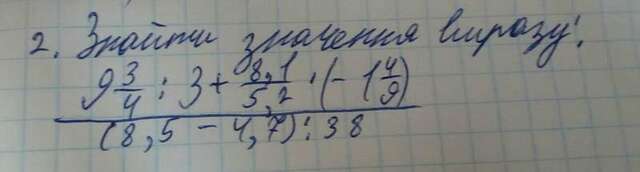 2. Знайти значення виразу:
9 3/4 : 3 + 8,1/5,2 · (- 1 4/9)
(8,5 - 4,7) : 38